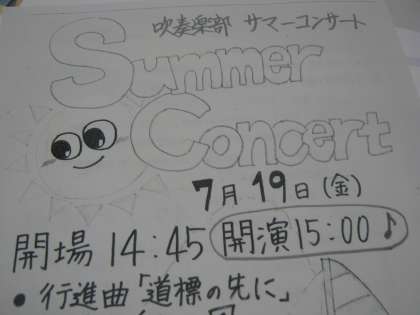 吹奏楽部 サマーコンサート
Summer
Concert
7月19日(金)
開場14:45 開演15:00♪
• 行進曲「道標の先に」